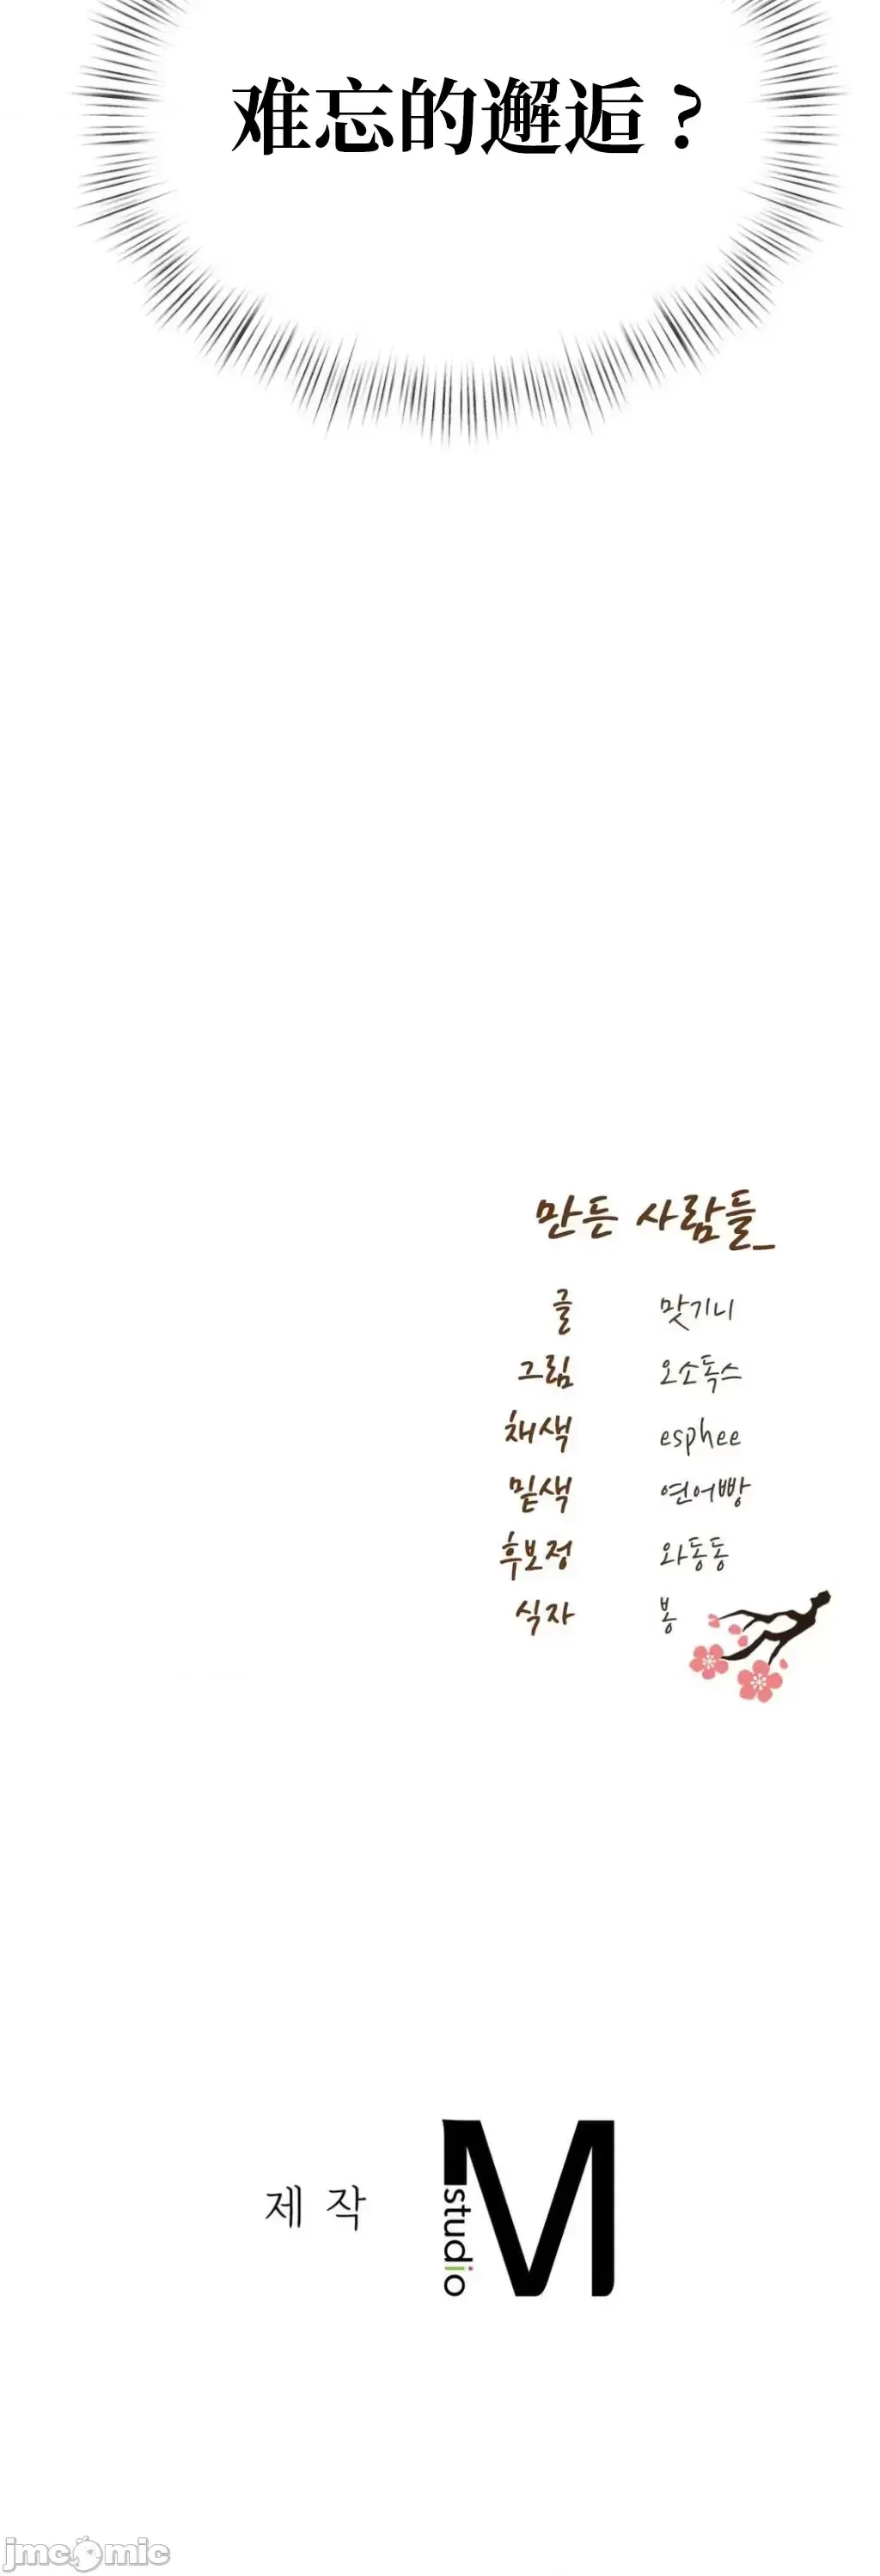 难忘的邂逅？
만든 사람들_
글 맛기니
그림 오소독스
채색 esphee
밑색 연어빵
후보정 와동동
식자 봉
제 작 M studio
jmcomic